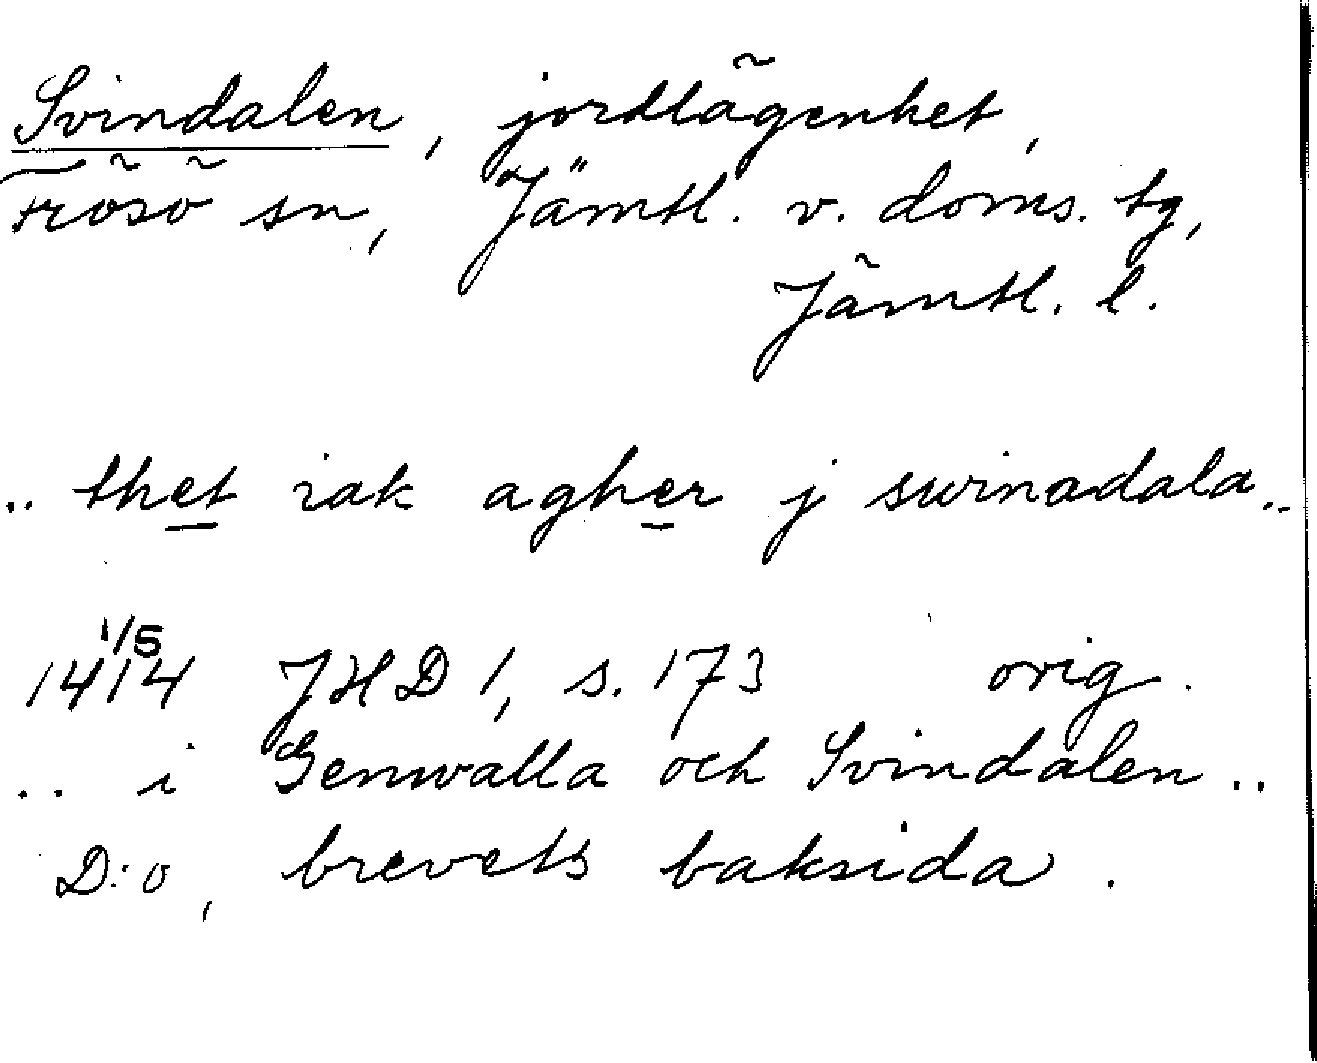 Svindalen, jordlägenhet,
Frösö sn, Jämtl. v. doms. tg,
Jämtl. l.
.. thet iak agher j swinadala..
1/5
1414 JHD 1, s. 173 orig.
.. i Genwalla och Svindalen ..
D:o, brevets baksida.